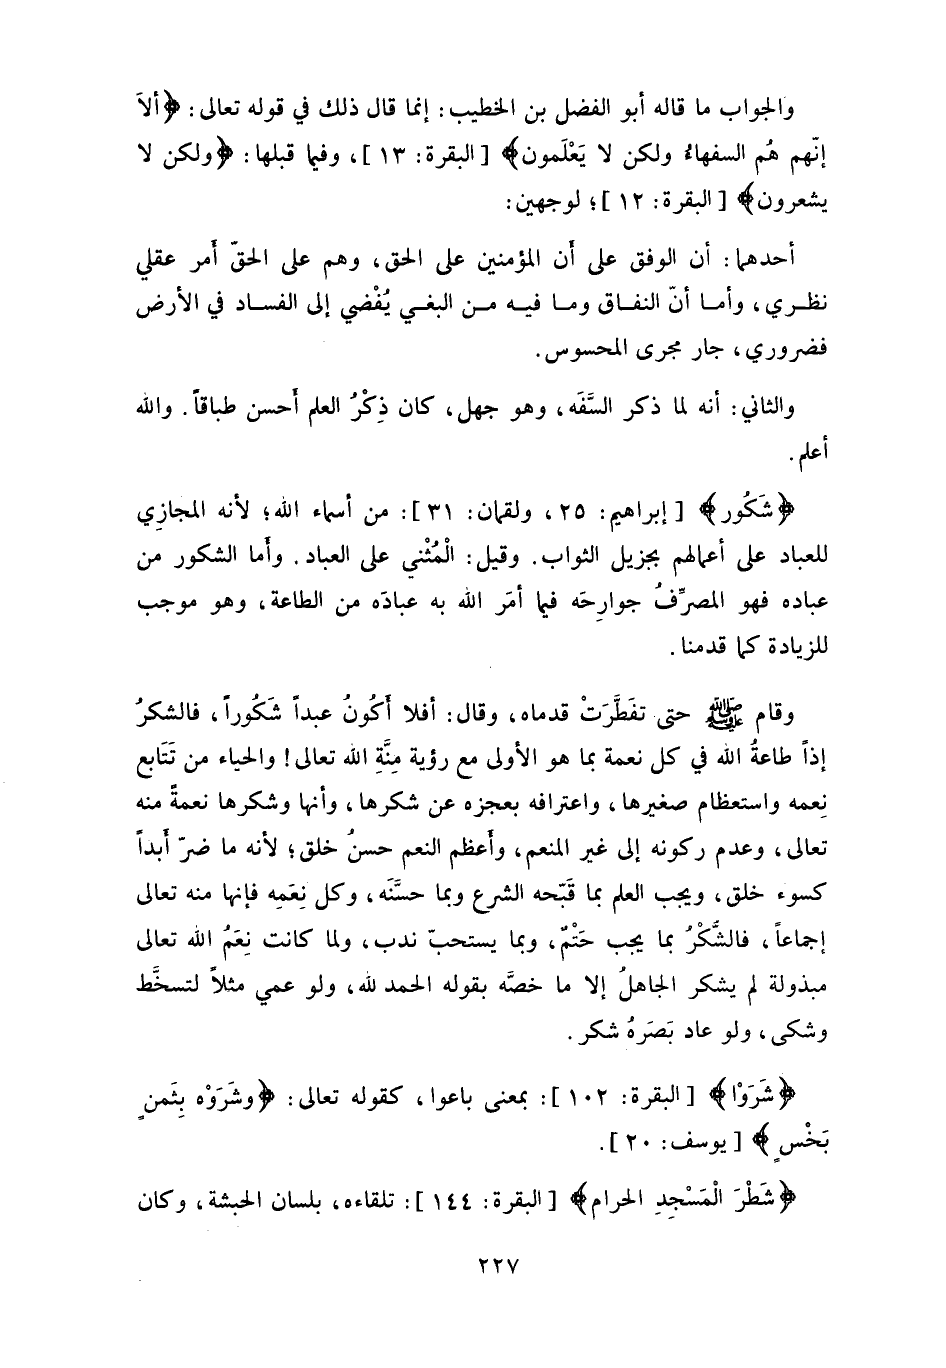 والجواب ما قاله أبو الفضل بن الخطيب: إنما قال ذلك في قوله تعالى: ﴿ألاَ
إنّهم هُم السفهاءُ ولكن لا يَعْلَمون﴾ [البقرة: ١٣]، وفيما قبلها: ﴿ولكن لا
يشعرون﴾ [البقرة: ١٢]؛ لوجهين:
أحدهما: أن الوفق على أن المؤمنين على الحق، وهم على الحقّ أمر عقلي
نظري، وأما أنّ النفاق وما فيه من البغي يُفْضي إلى الفساد في الأرض
فضروري، جار مجرى المحسوس.
والثاني: أنه لما ذكر السَّفَه، وهو جهل، كان ذِكْرُ العلم أحسن طباقاً. والله
أعلم.
﴿شَكُور﴾ [إبراهيم: ٢٥، ولقمان: ٣١]: من أسماء الله؛ لأنه المجازِي
للعباد على أعمالهم بجزيل الثواب. وقيل: الْمُثْني على العباد. وأما الشكور من
عباده فهو المصرِّفُ جوارِحَه فيما أمَر الله به عبادَه من الطاعة، وهو موجب
للزيادة كما قدمنا.
وقام ﷺ حتى تفَطَّرَتْ قدماه، وقال: أفلا أَكُونُ عبداً شَكُوراً، فالشكرُ
إذاً طاعةُ الله في كل نعمة بما هو الأولى مع رؤية مِنَّةِ الله تعالى! والحياء من تَتَابع
نِعمه واستعظام صغيرها، واعترافه بعجزه عن شكرها، وأنها وشكرها نعمةً منه
تعالى، وعدم ركونه إلى غير المنعم، وأعظم النعم حسنُ خلق؛ لأنه ما ضرّ أبداً
كسوء خلق، ويجب العلم بما قَبّحه الشرع وبما حسَّنَه، وكل نِعَمِه فإنها منه تعالى
إجماعاً، فالشَّكْرُ بما يجب حَتْمٌ، وبما يستحبّ ندب، ولما كانت نِعَمُ الله تعالى
مبذولة لم يشكر الجاهلُ إلا ما خصَّه بقوله الحمد لله، ولو عمي مثلاً لتسخَّط
وشكى، ولو عاد بَصَرَهُ شكر.
﴿شَرَوْا﴾ [البقرة: ١٠٢]: بمعنى باعوا، كقوله تعالى: ﴿وشَرَوْه بِثَمنٍ
بَخْسٍ﴾ [يوسف: ٢٠].
﴿شَطْرَ الْمَسْجِدِ الحرام﴾ [البقرة: ١٤٤]: تلقاءه، بلسان الحبشة، وكان
٢٢٧